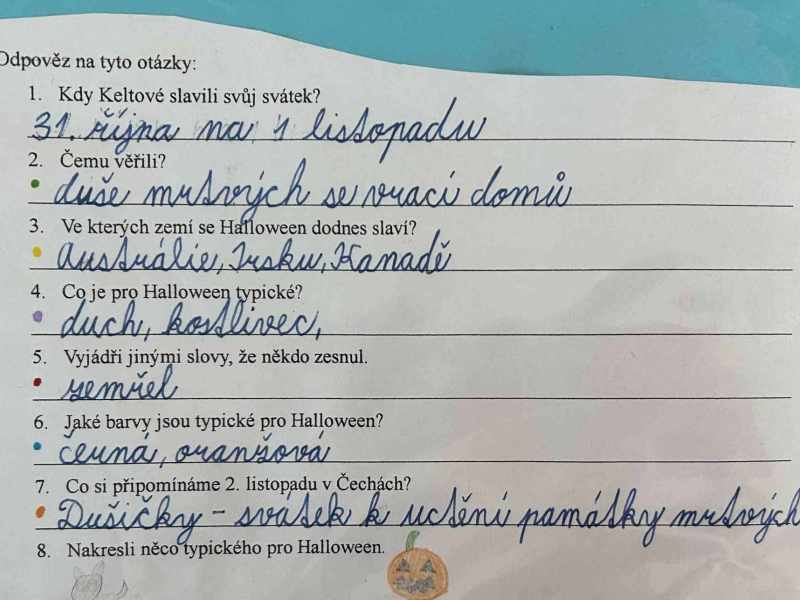 Odpověz na tyto otázky:
1. Kdy Keltové slavili svůj svátek?
31. října na 1 listopadu
2. Čemu věřili?
duše mrtvých se vrací domů
3. Ve kterých zemí se Halloween dodnes slaví?
Austrálie, Irsku, Kanadě
4. Co je pro Halloween typické?
duch, kostlivec,
5. Vyjádři jinými slovy, že někdo zesnul.
zemřel
6. Jaké barvy jsou typické pro Halloween?
černá, oranžová
7. Co si připomínáme 2. listopadu v Čechách?
Dušičky - svátek k uctění památky mrtvých
8. Nakresli něco typického pro Halloween.